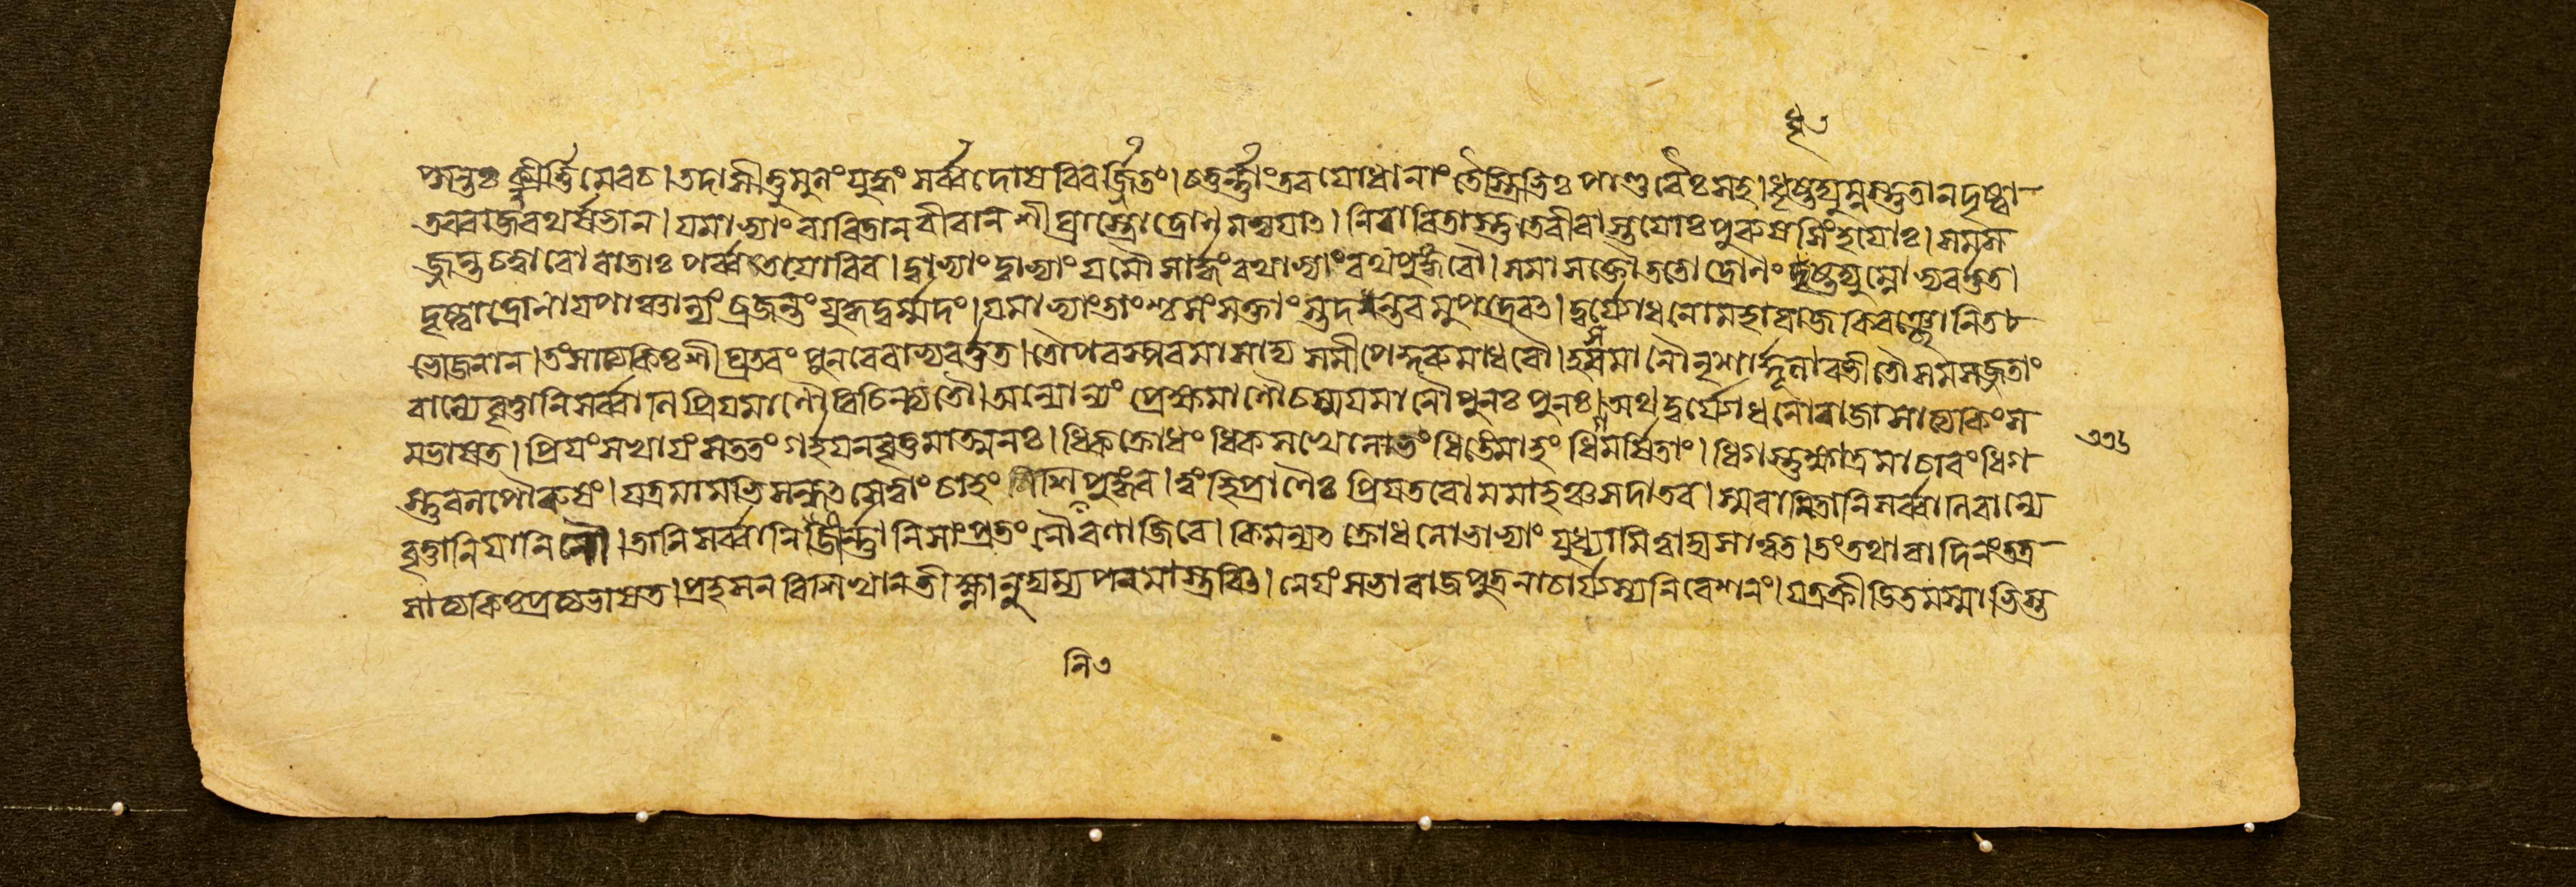 ধৃ৩
প্সন্তঃ কীর্ত্তিমেবচ। তদাসীত্তুমুলং যুদ্ধং সর্ব্বদোষবিবর্জ্জিতং। চতুর্ন্নাং তব যোধানাং তৈস্ত্রিভিঃ পাণ্ডবৈঃ সহ। ধৃষ্টদ্যুম্নস্তুতান দৃষ্ট্বা
তব রাজন রথর্ষভান। যমাভ্যাং বারিতান বীরান শীঘ্রাস্ত্রো দ্রোণমভ্যযাৎ। নিবারিতাস্তু তে বীরাস্তয়োঃ পুরুষসিংহয়োঃ। সমস
জ্জন্ত চত্বারো বাতাঃ পর্ব্বতয়োরিব। দ্বাভ্যাং দ্বাভ্যাং যমৌ সার্দ্ধং রথাভ্যাং রথপুঙ্গবৌ। সমাসক্তৌ ততো দ্রোণং ধৃষ্টদ্যুম্নোভ্যবর্ত্তত।
দৃষ্ট্বা দ্রোণায় পাঞ্চাল্যং ব্রজন্তং যুদ্ধদুর্ম্মদং। যমাভ্যাং তাংশ্চ সংসক্তাং স্তদন্তরমুপাদ্রবৎ। দুর্য্যোধনো মহারাজ কিরঞ্ছোনিত
ভোজনান। তং সাত্যকিঃ শীঘ্রতরং পুনরেবাভ্যবর্ত্তত। তৌ পরস্পরমাসাদ্য সমীপে কুরুমাধবৌ। হসমানৌ নৃশার্দ্দূলাবভীতৌ সমসজ্জতাং
বাল্যে বৃত্তানি সর্ব্বানি প্রিয়মানৌ বিচিন্ত্য তৌ। অন্যোন্যং প্রেক্ষমানৌ চ স্ময়মানৌ পুনঃ পুনঃ। অথ দুর্য্যোধনো রাজা সাত্যকিং স
মভাষত। প্রিয়ং সখায়ং সততং গর্হয়ন বৃত্তমাত্মনঃ। ধিক ক্রোধং ধিক সখে লোভং ধিঙ্মোহং ধিগমর্ষিতাং। ধিগস্তু ক্ষাত্রমাচারং ধিগ
স্তু বলপৌরুষং। যত্র মামভিসন্ধৎসে ত্বাং চাহং শিনিপুঙ্গব। ত্বং হি প্রাণৈঃ প্রিয়তরো মমাহঞ্চ সদা তব। স্মরামি তানি সর্ব্বানি বাল্যে
বৃত্তানি যানি নৌ। তানি সর্ব্বানি জীর্ন্নানি সাংপ্রতং নৌ রণাজিরে। কিমন্যৎ ক্রোধলোভাভ্যাং যুধ্যামি ত্বাদ্য সাত্বত। তং তথাবাদিনং তত্র
সাত্যকিঃ প্রত্যভাষত। প্রহসন বিশিখান তীক্ষ্ণানুদ্যম্য পরমাস্ত্রবিৎ। নেয়ং সভা রাজপুত্র নাচার্য্যস্য নিবেশনং। যত্র ক্রীডিতমস্মাভিস্ত
নি৩